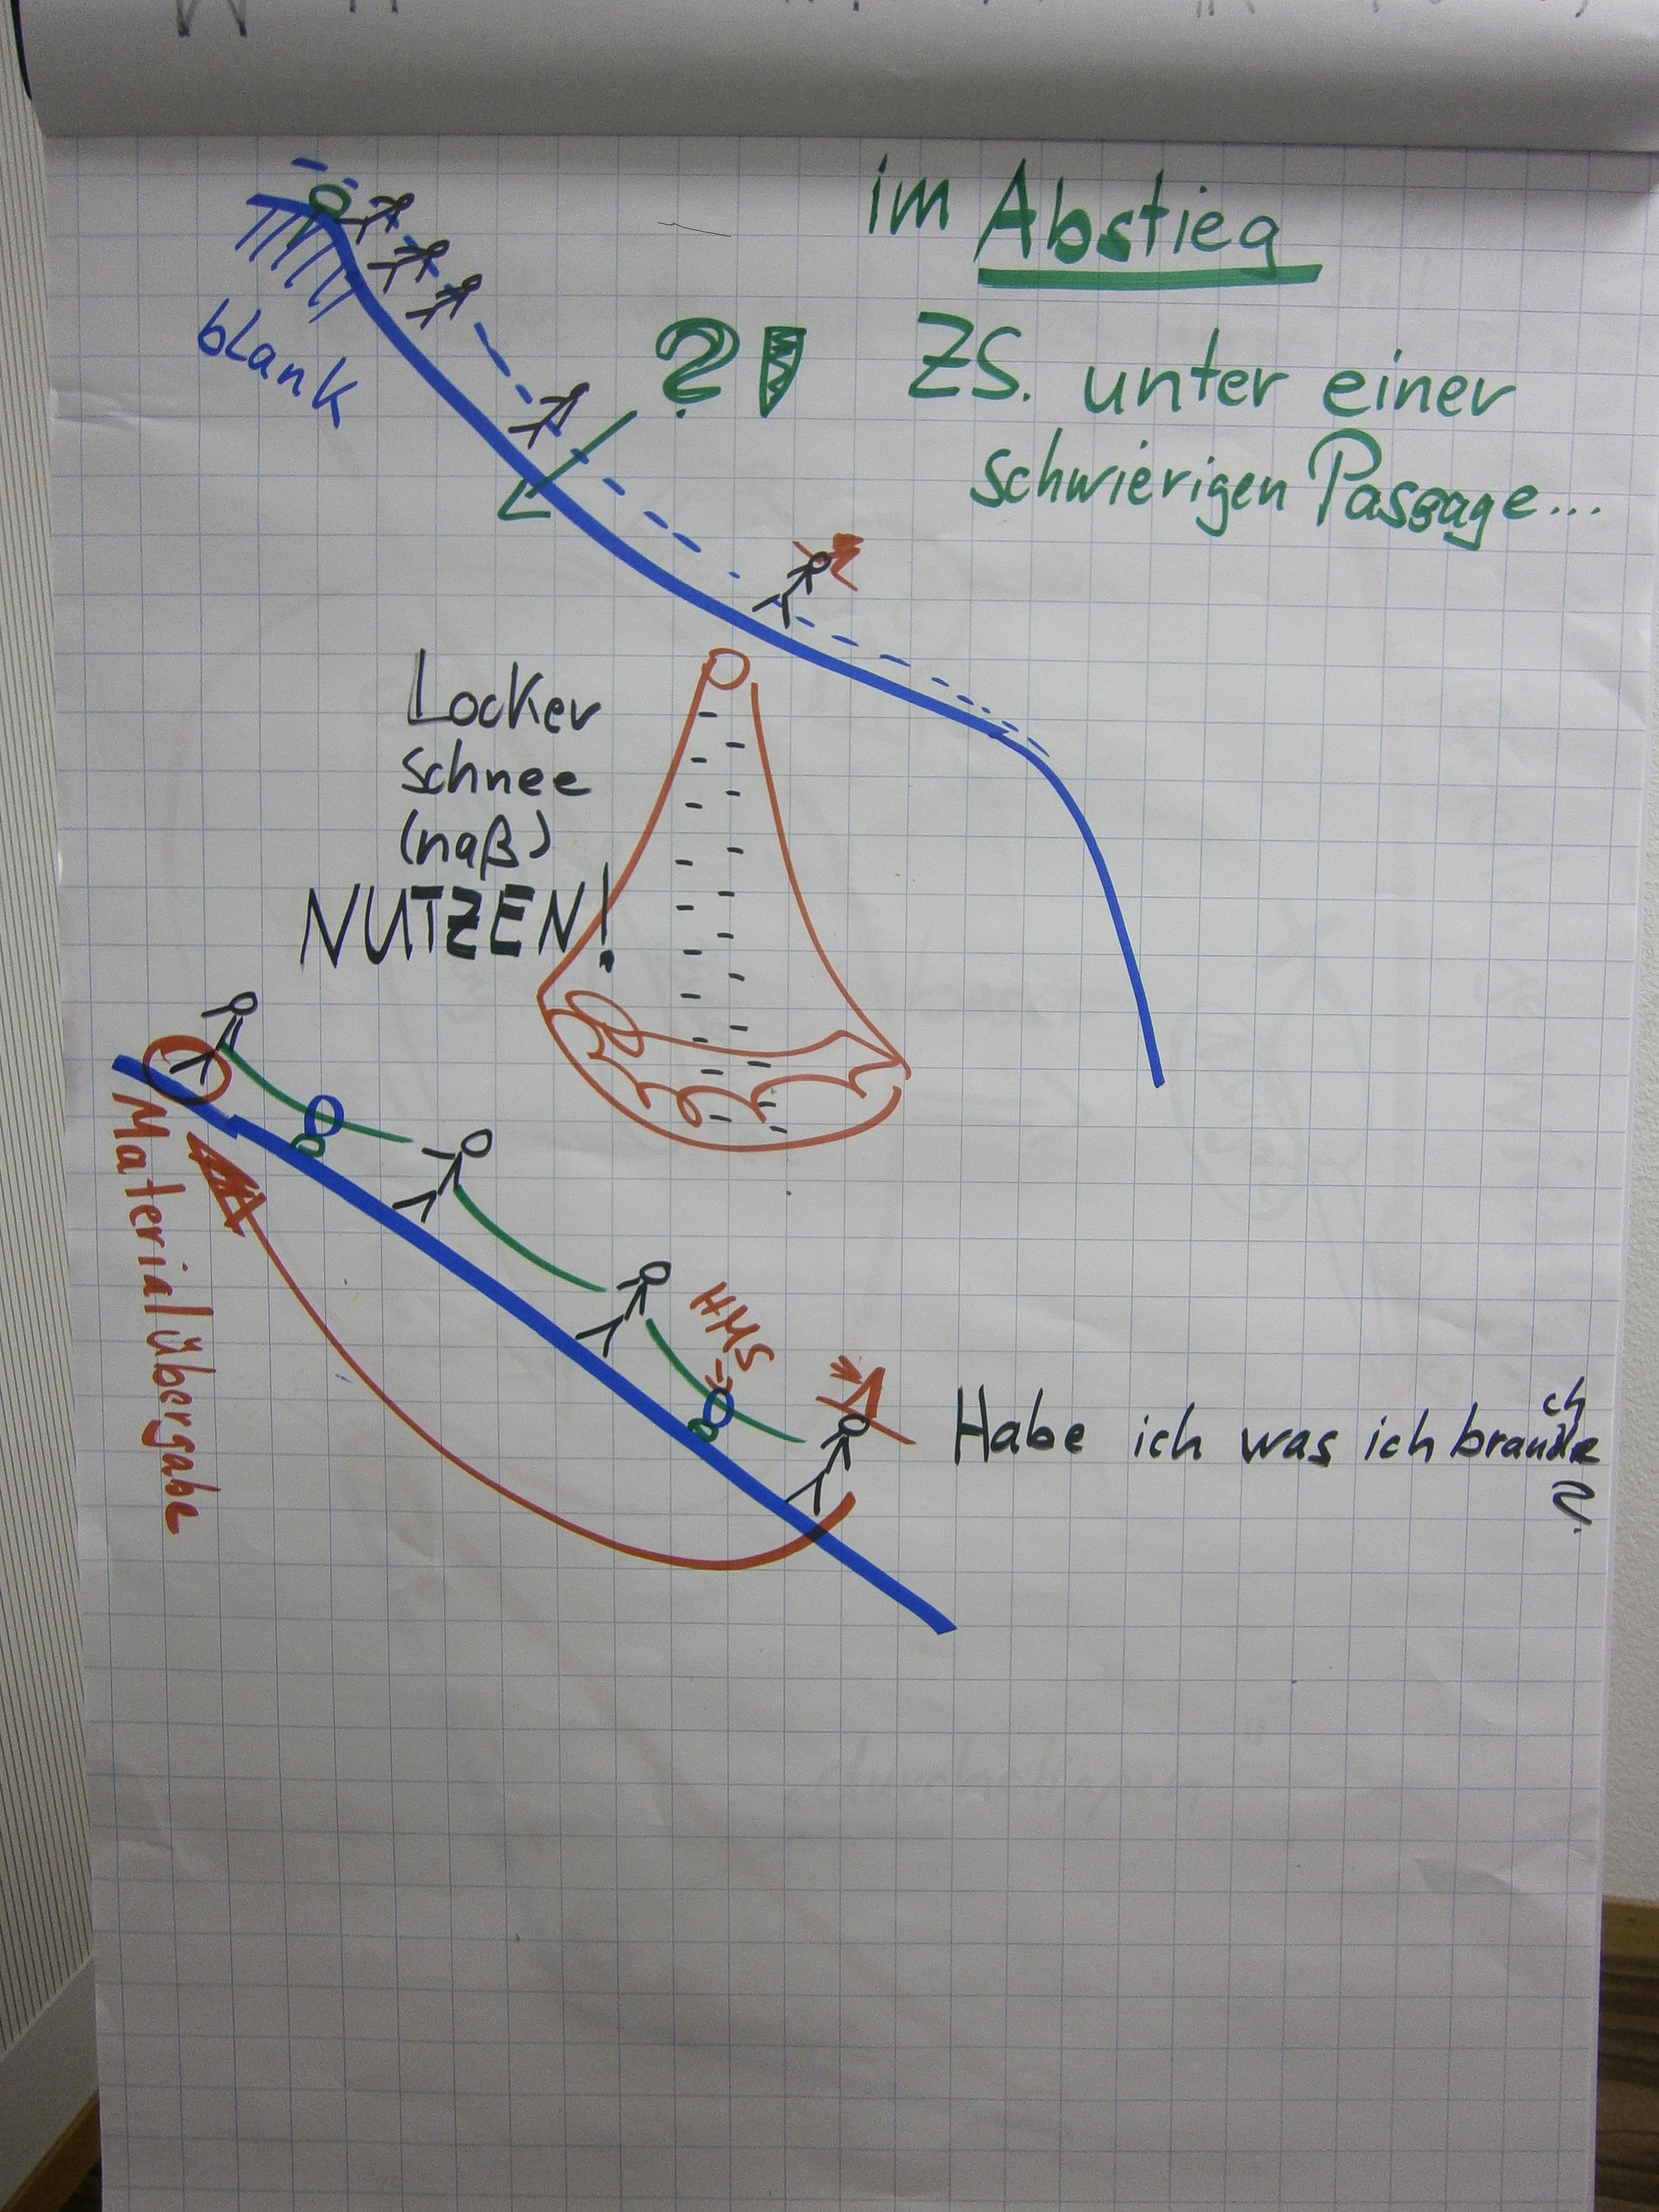 im Abstieg
blank
?! ZS. unter einer
schwierigen Passage...
Locker
schnee
(naß)
NUTZEN!
Materialübergabe
HMS
Habe ich was ich brauche
?